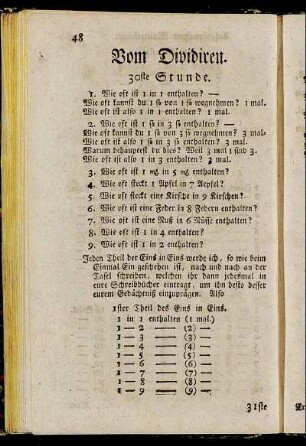 48
Vom Dividiren.
30ste Stunde.
1. Wie oft ist 1 in 1 enthalten?
Wie oft kannst du 1 ß von 1 ß wegnehmen? 1 mal.
Wie oft ist also 1 in 1 enthalten? 1 mal.
2. Wie oft ist 1 ß in 3 ß enthalten? —
Wie oft kannst du 1 ß von 3 ß wegnehmen? 3 mal.
Wie oft ist also 1 ß in 3 ß enthalten? 3 mal.
Warum behauptest du dies? Weil 3 mal 1 sind 3.
Wie oft ist also 1 in 3 enthalten? 3 mal.
3. Wie oft ist 1 in 5 enthalten?
4. Wie oft steckt 1 Apfel in 7 Aepfel?
5. Wie oft steckt eine Kirsche in 9 Kirschen?
6. Wie oft ist eine Feder in 8 Federn enthalten?
7. Wie oft ist eine Nuß in 6 Nüsse enthalten?
8. Wie oft ist 1 in 4 enthalten?
9. Wie oft ist 1 in 2 enthalten?
Jeden Theil der Eins in Eins werde ich, so wie beim
Einmal Ein geschehen ist, nach und nach an der
Tafel schreiben, welchen ihr dann jedesmal in
eure Schreibbücher eintragt, um ihn desto besser
eurem Gedächtniß einzuprägen. Also
1ster Theil des Eins in Eins.
1 in 1 enthalten (1 mal.)
1 — 2 — (2) —
1 — 3 — (3) —
1 — 4 — (4) —
1 — 5 — (5) —
1 — 6 — (6) —
1 — 7 — (7) —
1 — 8 — (8) —
1 — 9 — (9) —
31ste